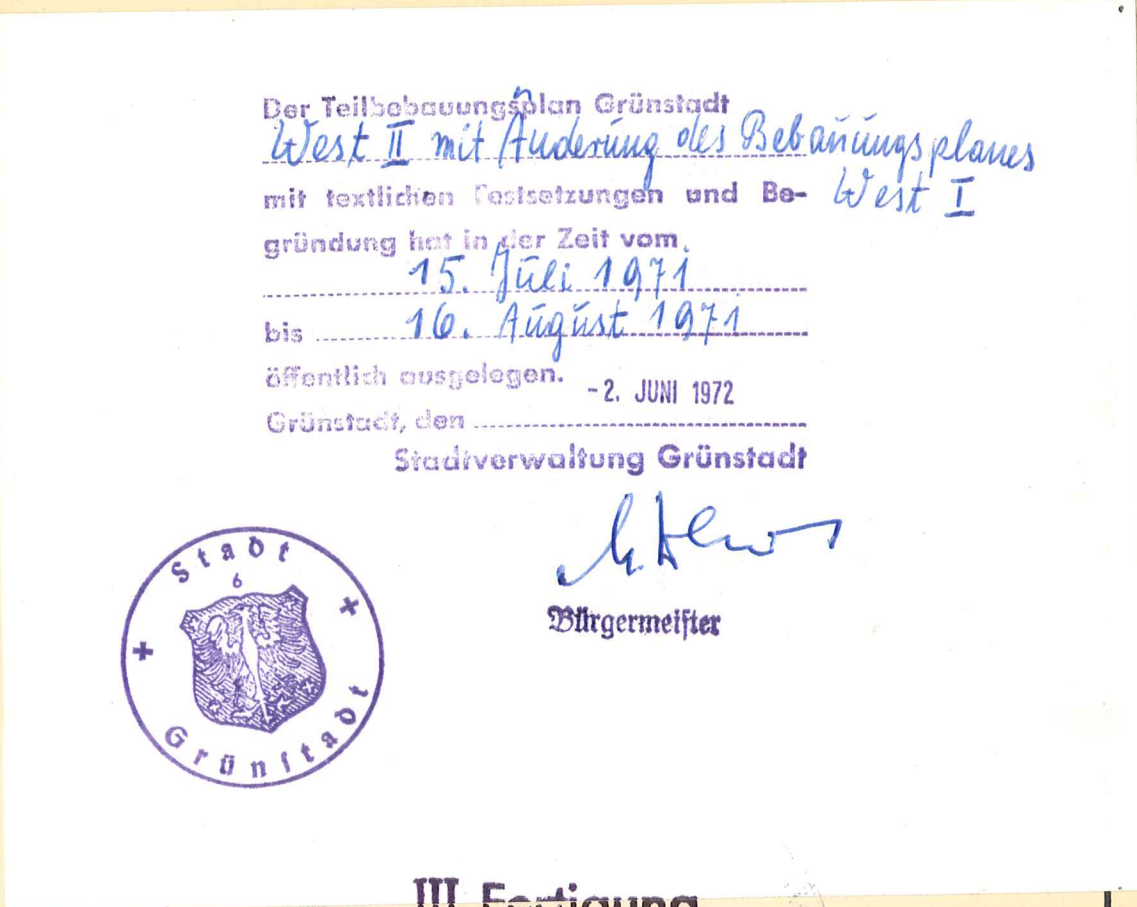 Der Teilbebauungsplan Grünstadt
West II mit Änderung des Bebauungsplanes
West I
mit textlichen Festsetzungen und Be-
gründung hat in der Zeit vom
15. Juli 1971
bis 16. August 1971
öffentlich ausgelegen.
Grünstadt, den -2. JUNI 1972
Stadtverwaltung Grünstadt
Bürgermeister
Stadt
6
Grünstadt
III Fertigung